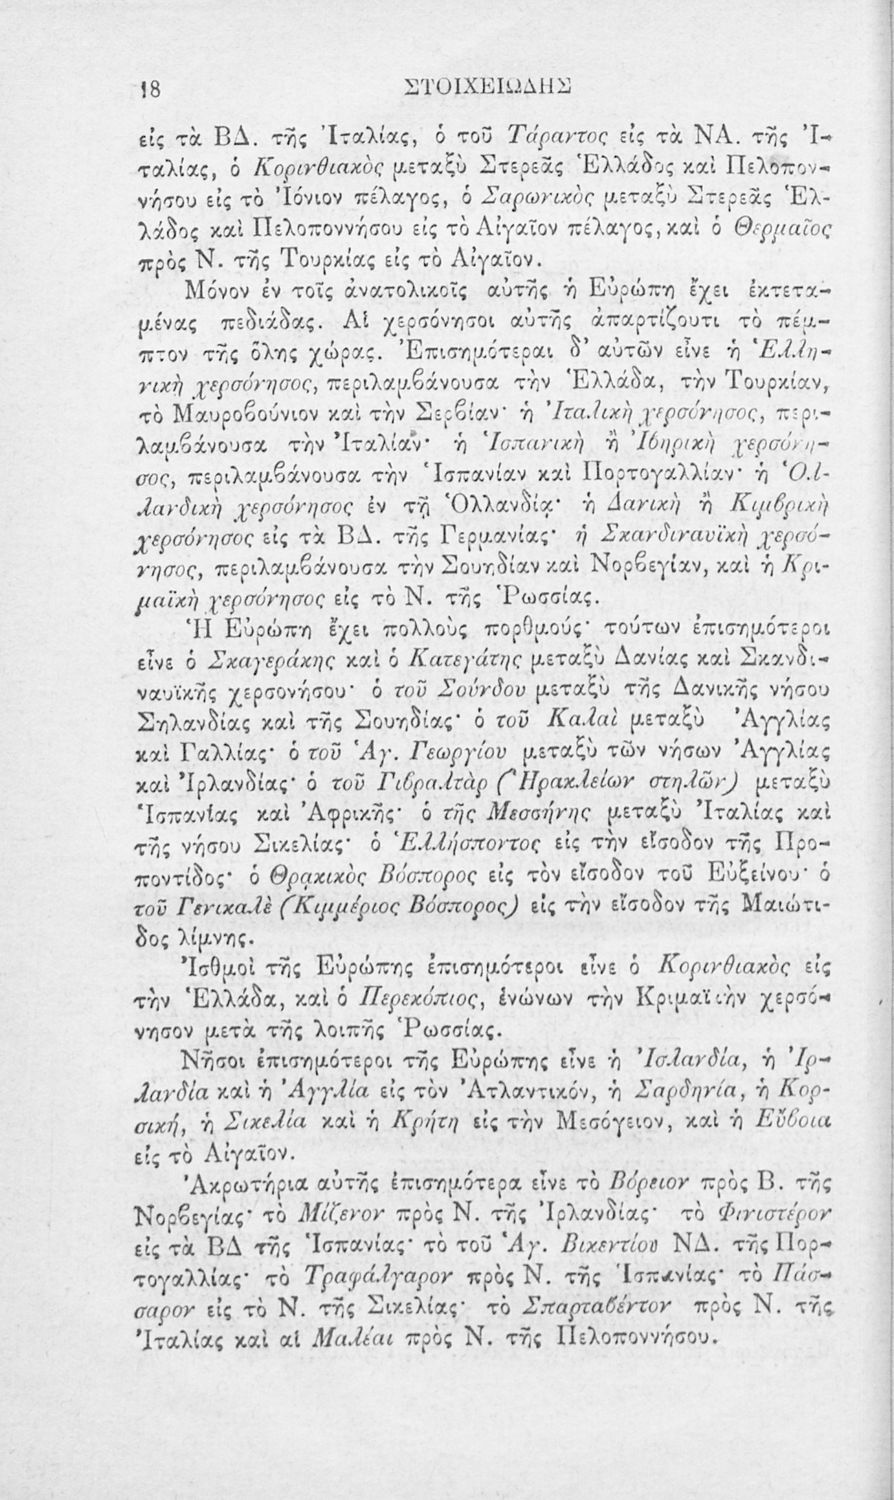 18 ΣΤΟΙΧΕΙΩΔΗΣ
εἰς τὰ ΒΔ. τῆς Ἰταλίας, ὁ τοῦ Τάραντος εἰς τὰ ΝΑ. τῆς Ἰ-
ταλίας, ὁ Κορινθιακὸς μεταξὺ Στερεᾶς Ἑλλάδος καὶ Πελοπον-
νήσου εἰς τὸ Ἰόνιον πέλαγος, ὁ Σαρωνικὸς μεταξὺ Στερεᾶς Ἑλ-
λάδος καὶ Πελοποννήσου εἰς τὸ Αἰγαῖον πέλαγος, καὶ ὁ Θερμαῖος
πρὸς Ν. τῆς Τουρκίας εἰς τὸ Αἰγαῖον.
Μόνον ἐν τοῖς ἀνατολικοῖς αὐτῆς ἡ Εὐρώπη ἔχει ἐκτετα-
μένας πεδιάδας. Αἱ χερσόνησοι αὐτῆς ἀπαρτίζουτι τὸ πέμ-
πτον τῆς ὅλης χώρας. Ἐπισημότεραι δ' αὐτῶν εἶνε ἡ Ἑλλη-
νικὴ χερσόνησος, περιλαμβάνουσα τὴν Ἑλλάδα, τὴν Τουρκίαν,
τὸ Μαυροβούνιον καὶ τὴν Σερβίαν· ἡ Ἰταλικὴ χερσόνησος, περι-
λαμβάνουσα τὴν Ἰταλίαν· ἡ Ἱσπανικὴ ἢ Ἰβηρικὴ χερσόνη-
σος, περιλαμβάνουσα τὴν Ἱσπανίαν καὶ Πορτογαλλίαν· ἡ Ὁλ-
λανδικὴ χερσόνησος ἐν τῇ Ὁλλανδίᾳ· ἡ Δανικὴ ἢ Κιμβρικὴ
χερσόνησος εἰς τὰ ΒΔ. τῆς Γερμανίας· ἡ Σκανδιναυϊκὴ χερσό-
νησος, περιλαμβάνουσα τὴν Σουηδίαν καὶ Νορβεγίαν, καὶ ἡ Κρι-
μαϊκὴ χερσόνησος εἰς τὸ Ν. τῆς Ῥωσσίας.
Ἡ Εὐρώπη ἔχει πολλοὺς πορθμούς· τούτων ἐπισημότεροι
εἶνε ὁ Σκαγεράκης καὶ ὁ Κατεγάτης μεταξὺ Δανίας καὶ Σκανδι-
ναυϊκῆς χερσονήσου· ὁ τοῦ Σούνδου μεταξὺ τῆς Δανικῆς νήσου
Σηλανδίας καὶ τῆς Σουηδίας· ὁ τοῦ Καλαὶ μεταξὺ Ἀγγλίας
καὶ Γαλλίας· ὁ τοῦ Ἁγ. Γεωργίου μεταξὺ τῶν νήσων Ἀγγλίας
καὶ Ἰρλανδίας· ὁ τοῦ Γιβραλτὰρ (Ἡρακλείων στηλῶν) μεταξὺ
Ἱσπανίας καὶ Ἀφρικῆς· ὁ τῆς Μεσσήνης μεταξὺ Ἰταλίας καὶ
τῆς νήσου Σικελίας· ὁ Ἑλλήσποντος εἰς τὴν εἴσοδον τῆς Προ-
ποντίδος· ὁ Θρᾳκικὸς Βόσπορος εἰς τὸν εἴσοδον τοῦ Εὐξείνου· ὁ
τοῦ Γενικαλὲ (Κιμμέριος Βόσπορος) εἰς τὴν εἴσοδον τῆς Μαιώτι-
δος λίμνης.
Ἰσθμοὶ τῆς Εὐρώπης ἐπισημότεροι εἶνε ὁ Κορινθιακὸς εἰς
τὴν Ἑλλάδα, καὶ ὁ Περεκόπιος, ἑνώνων τὴν Κριμαϊκὴν χερσό-
νησον μετὰ τῆς λοιπῆς Ῥωσσίας.
Νῆσοι ἐπισημότεροι τῆς Εὐρώπης εἶνε ἡ Ἰσλανδία, ἡ Ἰρ-
λανδία καὶ ἡ Ἀγγλία εἰς τὸν Ἀτλαντικόν, ἡ Σαρδηνία, ἡ Κορ-
σική, ἡ Σικελία καὶ ἡ Κρήτη εἰς τὴν Μεσόγειον, καὶ ἡ Εὔβοια
εἰς τὸ Αἰγαῖον.
Ἀκρωτήρια αὐτῆς ἐπισημότερα εἶνε τὸ Βόρειον πρὸς Β. τῆς
Νορβεγίας· τὸ Μίζενον πρὸς Ν. τῆς Ἰρλανδίας· τὸ Φινιστέρον
εἰς τὰ ΒΔ τῆς Ἱσπανίας· τὸ τοῦ Ἁγ. Βικεντίου ΝΔ. τῆς Πορ-
τογαλλίας· τὸ Τραφάλγαρον πρὸς Ν. τῆς Ἱσπανίας· τὸ Πάσ-
σαρον εἰς τὸ Ν. τῆς Σικελίας· τὸ Σπαρταβέντον πρὸς Ν. τῆς
Ἰταλίας καὶ αἱ Μαλέαι πρὸς Ν. τῆς Πελοποννήσου.